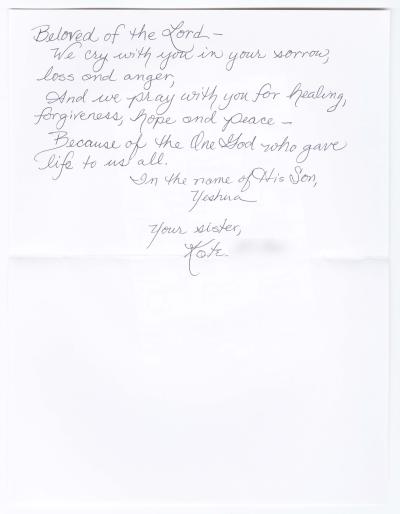 Beloved of the Lord –
We cry with you in your sorrow,
loss and anger,
And we pray with you for healing,
forgiveness, hope and peace –
Because of the One God who gave
life to us all.
In the name of His Son,
Yeshua
Your sister,
Kate